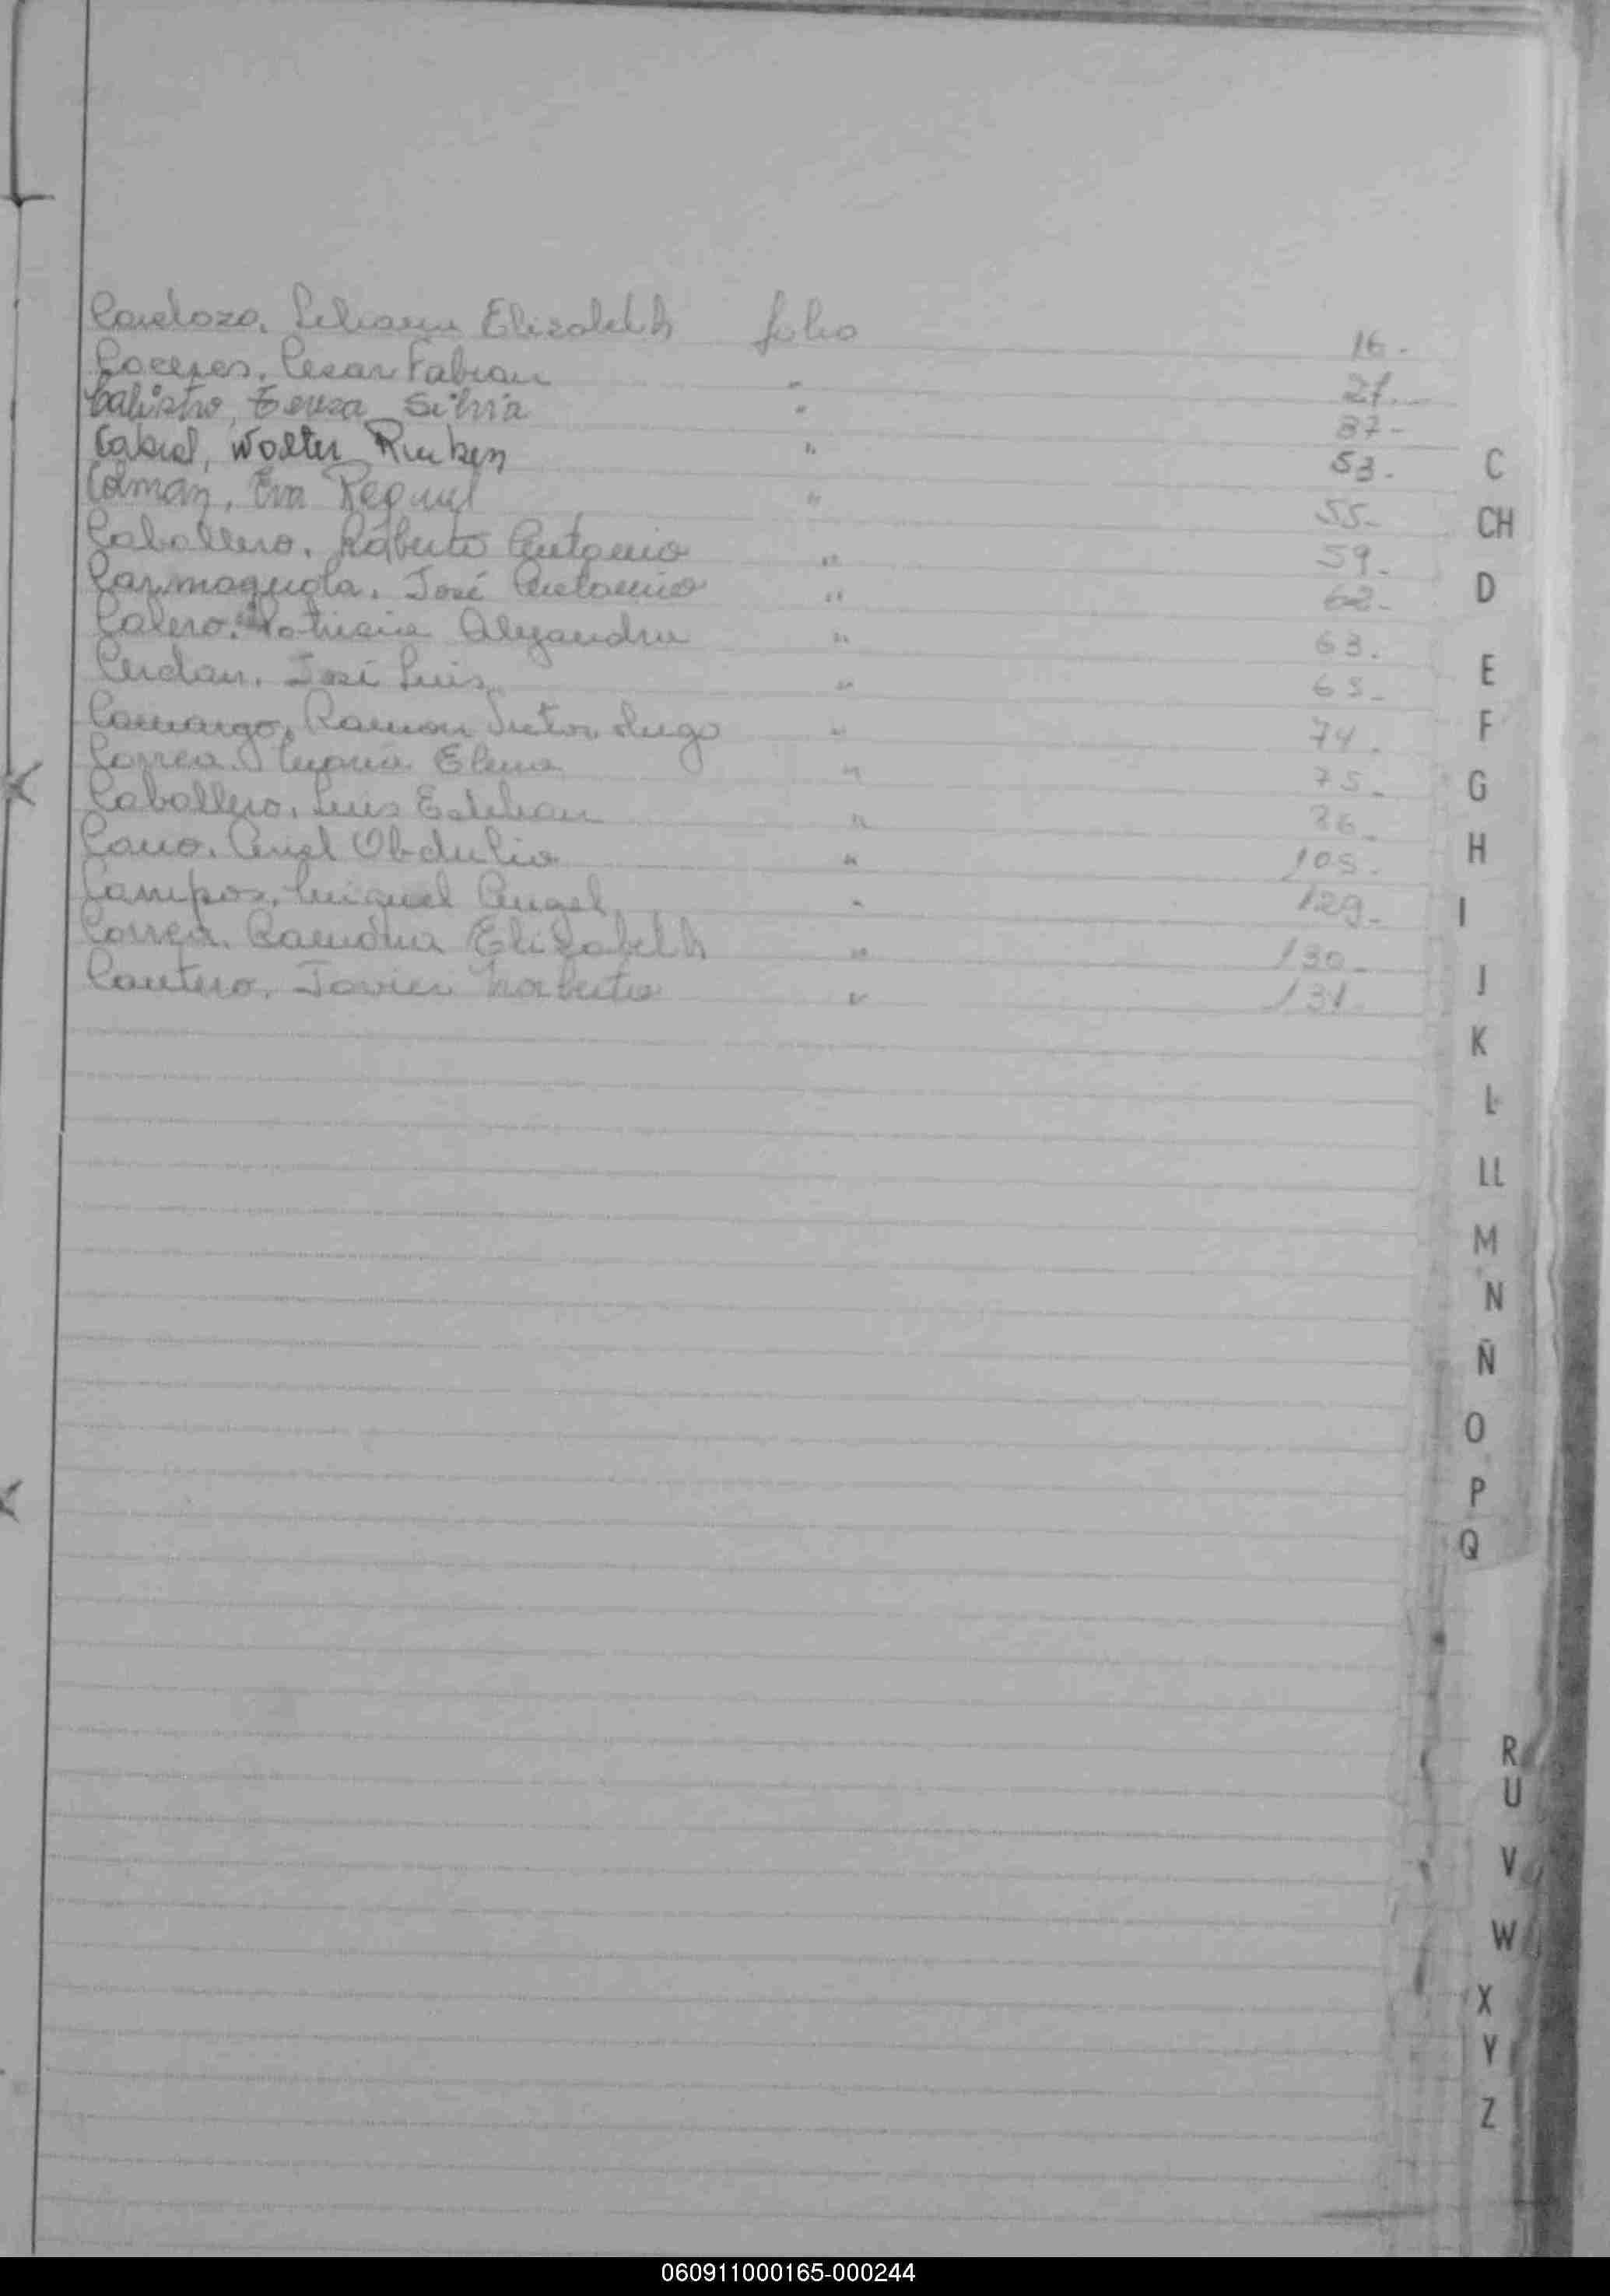 Cardozo, Liliana Elizabeth folio 16.-
Caceres, Cesar Fabian " 27.-
Calistro, Teresa Silvia " 37.-
Cabral, Walter Ruben " 53.-
Colman, Eva Raquel " 55.-
Caballero, Roberto Antonio " 59.-
Carmagnola, José Antonio " 62.-
Calero, Patricia Alejandra " 63.-
Cerdan, José Luis " 65.-
Camargo, Ramon Victor Hugo " 74.-
Correa, Elena " 75.-
Caballero, Luis Esteban "
Cano, Ariel Obdulio " 105.-
Campos, Miguel Angel " 129.-
Correa, Ramona Elizabeth " 130.-
Cantero, Javier Norberto " 131.
C
CH
D
E
F
G
H
I
J
K
L
LL
M
N
Ñ
O
P
Q
R
U
V
W
X
Y
Z
060911000165-000244